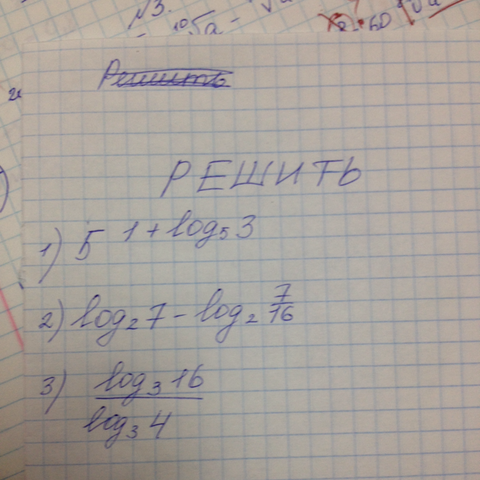 №3.
Решить
РЕШИТЬ
1) 5^{1 + log_5 3}
2) log_2 7 - log_2 7/16
3) log_3 16 / log_3 4